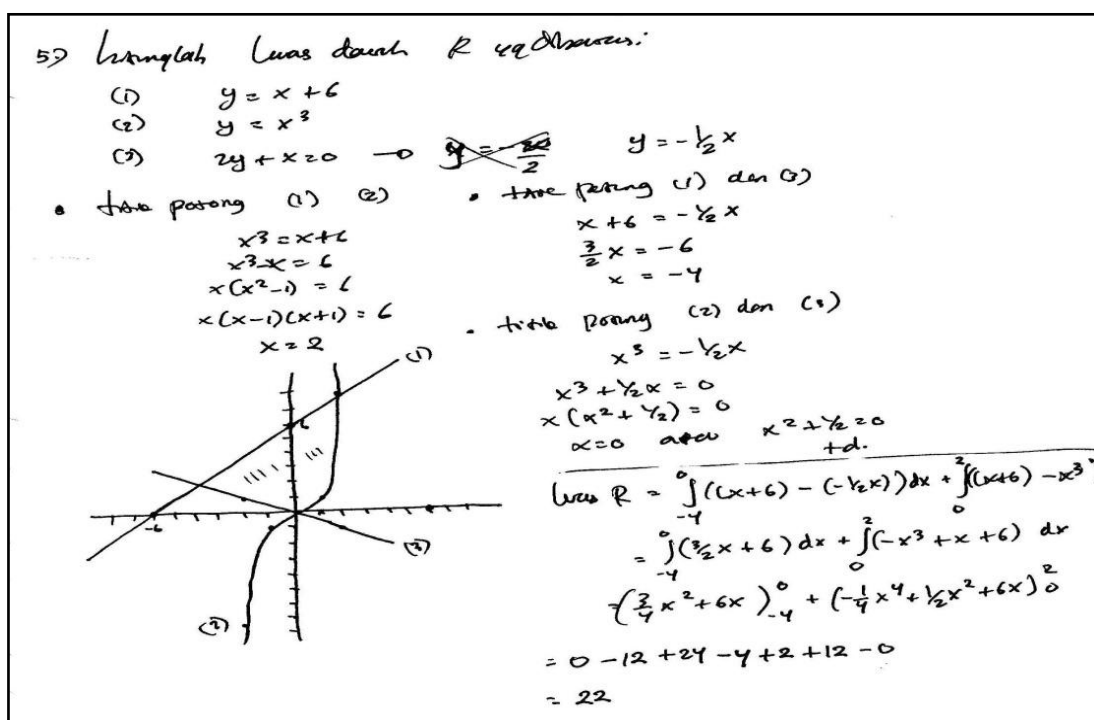 5) Hitunglah luas daerah R yg dibatasi:
(1) y = x + 6
(2) y = x³
(3) 2y + x = 0 → y = -½x
• titik potong (1) (2)
x³ = x+6
x³-x = 6
x(x²-1) = 6
x(x-1)(x+1) = 6
x = 2
• titik potong (1) dan (3)
x + 6 = -½x
3/2 x = -6
x = -4
• titik potong (2) dan (3)
x³ = -½x
x³ + ½x = 0
x(x² + ½) = 0
x=0 atau x² + ½ = 0
td.
(1)
6
-6
(3)
(2)
luas R = ∫₋₄⁰ ((x+6) - (-½x)) dx + ∫₀² ((x+6) - x³
= ∫₋₄⁰ (3/2 x + 6) dx + ∫₀² (-x³ + x + 6) dx
= (3/4 x² + 6x)₋₄⁰ + (-¼x⁴ + ½x² + 6x)₀²
= 0 - 12 + 24 - 4 + 2 + 12 - 0
= 22